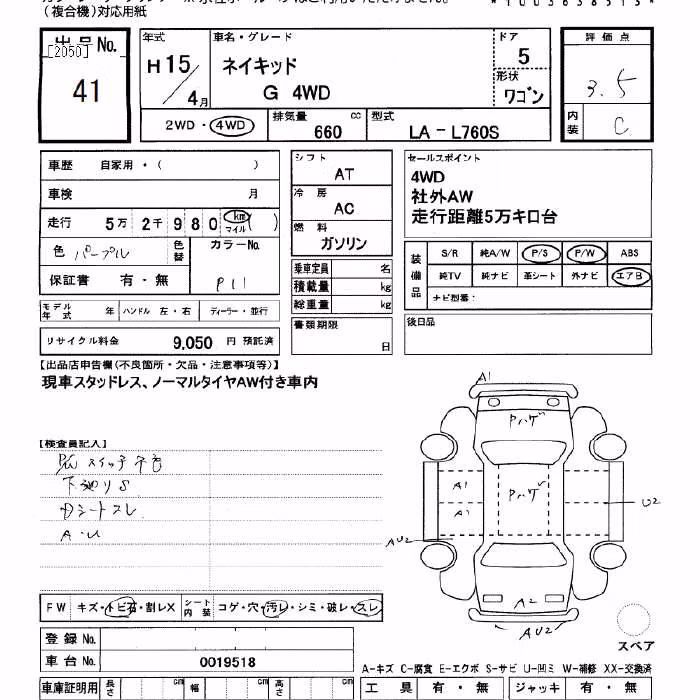 (複合機)対応用紙
出品No.
[2050]
41
年式
H15/4月
車名・グレード
ネイキッド
G 4WD
ドア
5
形状
ワゴン
評価点
3.5
内装
C
2WD・4WD
排気量 cc
660
型式
LA-L760S
車歴 自家用・( )
車検 月
走行 5万 2千 9 8 0 km マイル ( )
色 パープル
色替
カラーNo.
P11
保証書 有・無
モデル年式 年
ハンドル 左・右
ディーラー・並行
リサイクル料金 9,050 円 預託済
シフト
AT
冷房
AC
燃料
ガソリン
乗車定員 名
積載量 kg
総重量 kg
書類期限
日
セールスポイント
4WD
社外AW
走行距離5万キロ台
装備品
S/R 純A/W P/S P/W ABS
純TV 純ナビ 革シート 外ナビ エアB
ナビ型番:
後日品
【出品店申告欄(不良箇所・欠品・注意事項等)】
現車スタッドレス、ノーマルタイヤAW付き車内
【検査員記入】
下廻りS
シートスレ
A・U
FW キズ・トビ石・割レX
シート内装 コゲ・穴・汚レ・シミ・破レ・スレ
登録No.
車台No. 0019518
車庫証明用 長さ cm 幅 cm 高さ cm
A1
Pハゲ
A1
Pハゲ
A1
U2
AU2
A2
AU2
スペア
A-キズ C-腐食 E-エクボ S-サビ U-凹ミ W-補修 XX-交換済
工具 有・無 ジャッキ 有・無